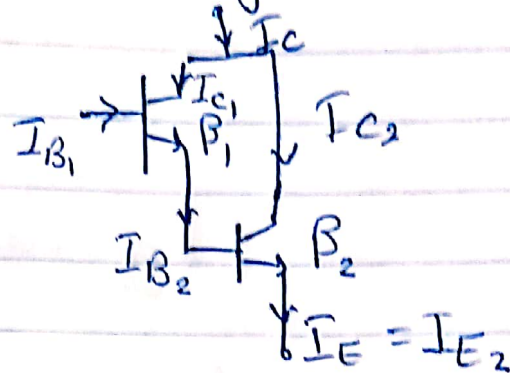 I_C
I_C₁
I_B₁ β₁ I_C₂
I_B₂ β₂
I_E = I_E₂